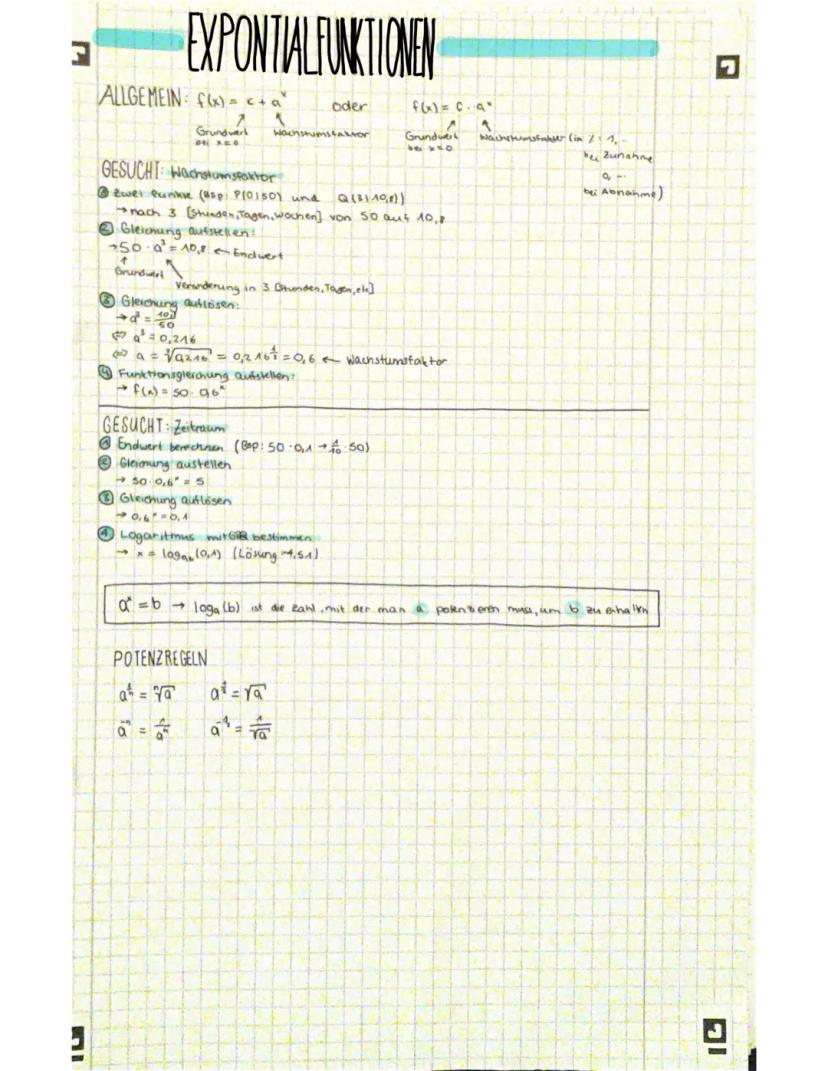 EXPONTIALFUNKTIONEN
ALLGEMEIN: f(x) = c + aˣ oder f(x) = c · aˣ
Grundwert bei x=0 Wachstumsfaktor Grundwert bei x=0 Wachstumsfaktor (in %: 1,..
bei Zunahme
0,..
bei Abnahme)
GESUCHT: Wachstumsfaktor
① Zwei Punkte (Bsp: P(0|50) und Q(3|10,8))
→ nach 3 [Stunden, Tagen, Wochen] von 50 auf 10,8
② Gleichung aufstellen:
→ 50 · a³ = 10,8 ← Endwert
Grundwert
Veränderung in 3 [Stunden, Tagen, etc]
③ Gleichung auflösen:
→ a³ = 10,8/50
⇔ a³ = 0,216
⇔ a = ³√0,216 = 0,216^(1/3) = 0,6 ← Wachstumsfaktor
④ Funktionsgleichung aufstellen:
→ f(x) = 50 · 0,6ˣ
GESUCHT: Zeitraum
① Endwert berechnen (Bsp: 50 · 0,1 → 1/10 · 50)
② Gleichung austellen
→ 50 · 0,6ˣ = 5
③ Gleichung auflösen
→ 0,6ˣ = 0,1
④ Logaritmus mit bestimmen
→ x = log₀,₆ (0,1) (Lösung ≈4,51)
aˣ = b → logₐ(b) ist die Zahl, mit der man a potenzieren muss, um b zu erhalten
POTENZREGELN
a^(1/n) = ⁿ√a a^(1/2) = √a
a⁻ⁿ = 1/aⁿ a^(-1/2) = 1/√a